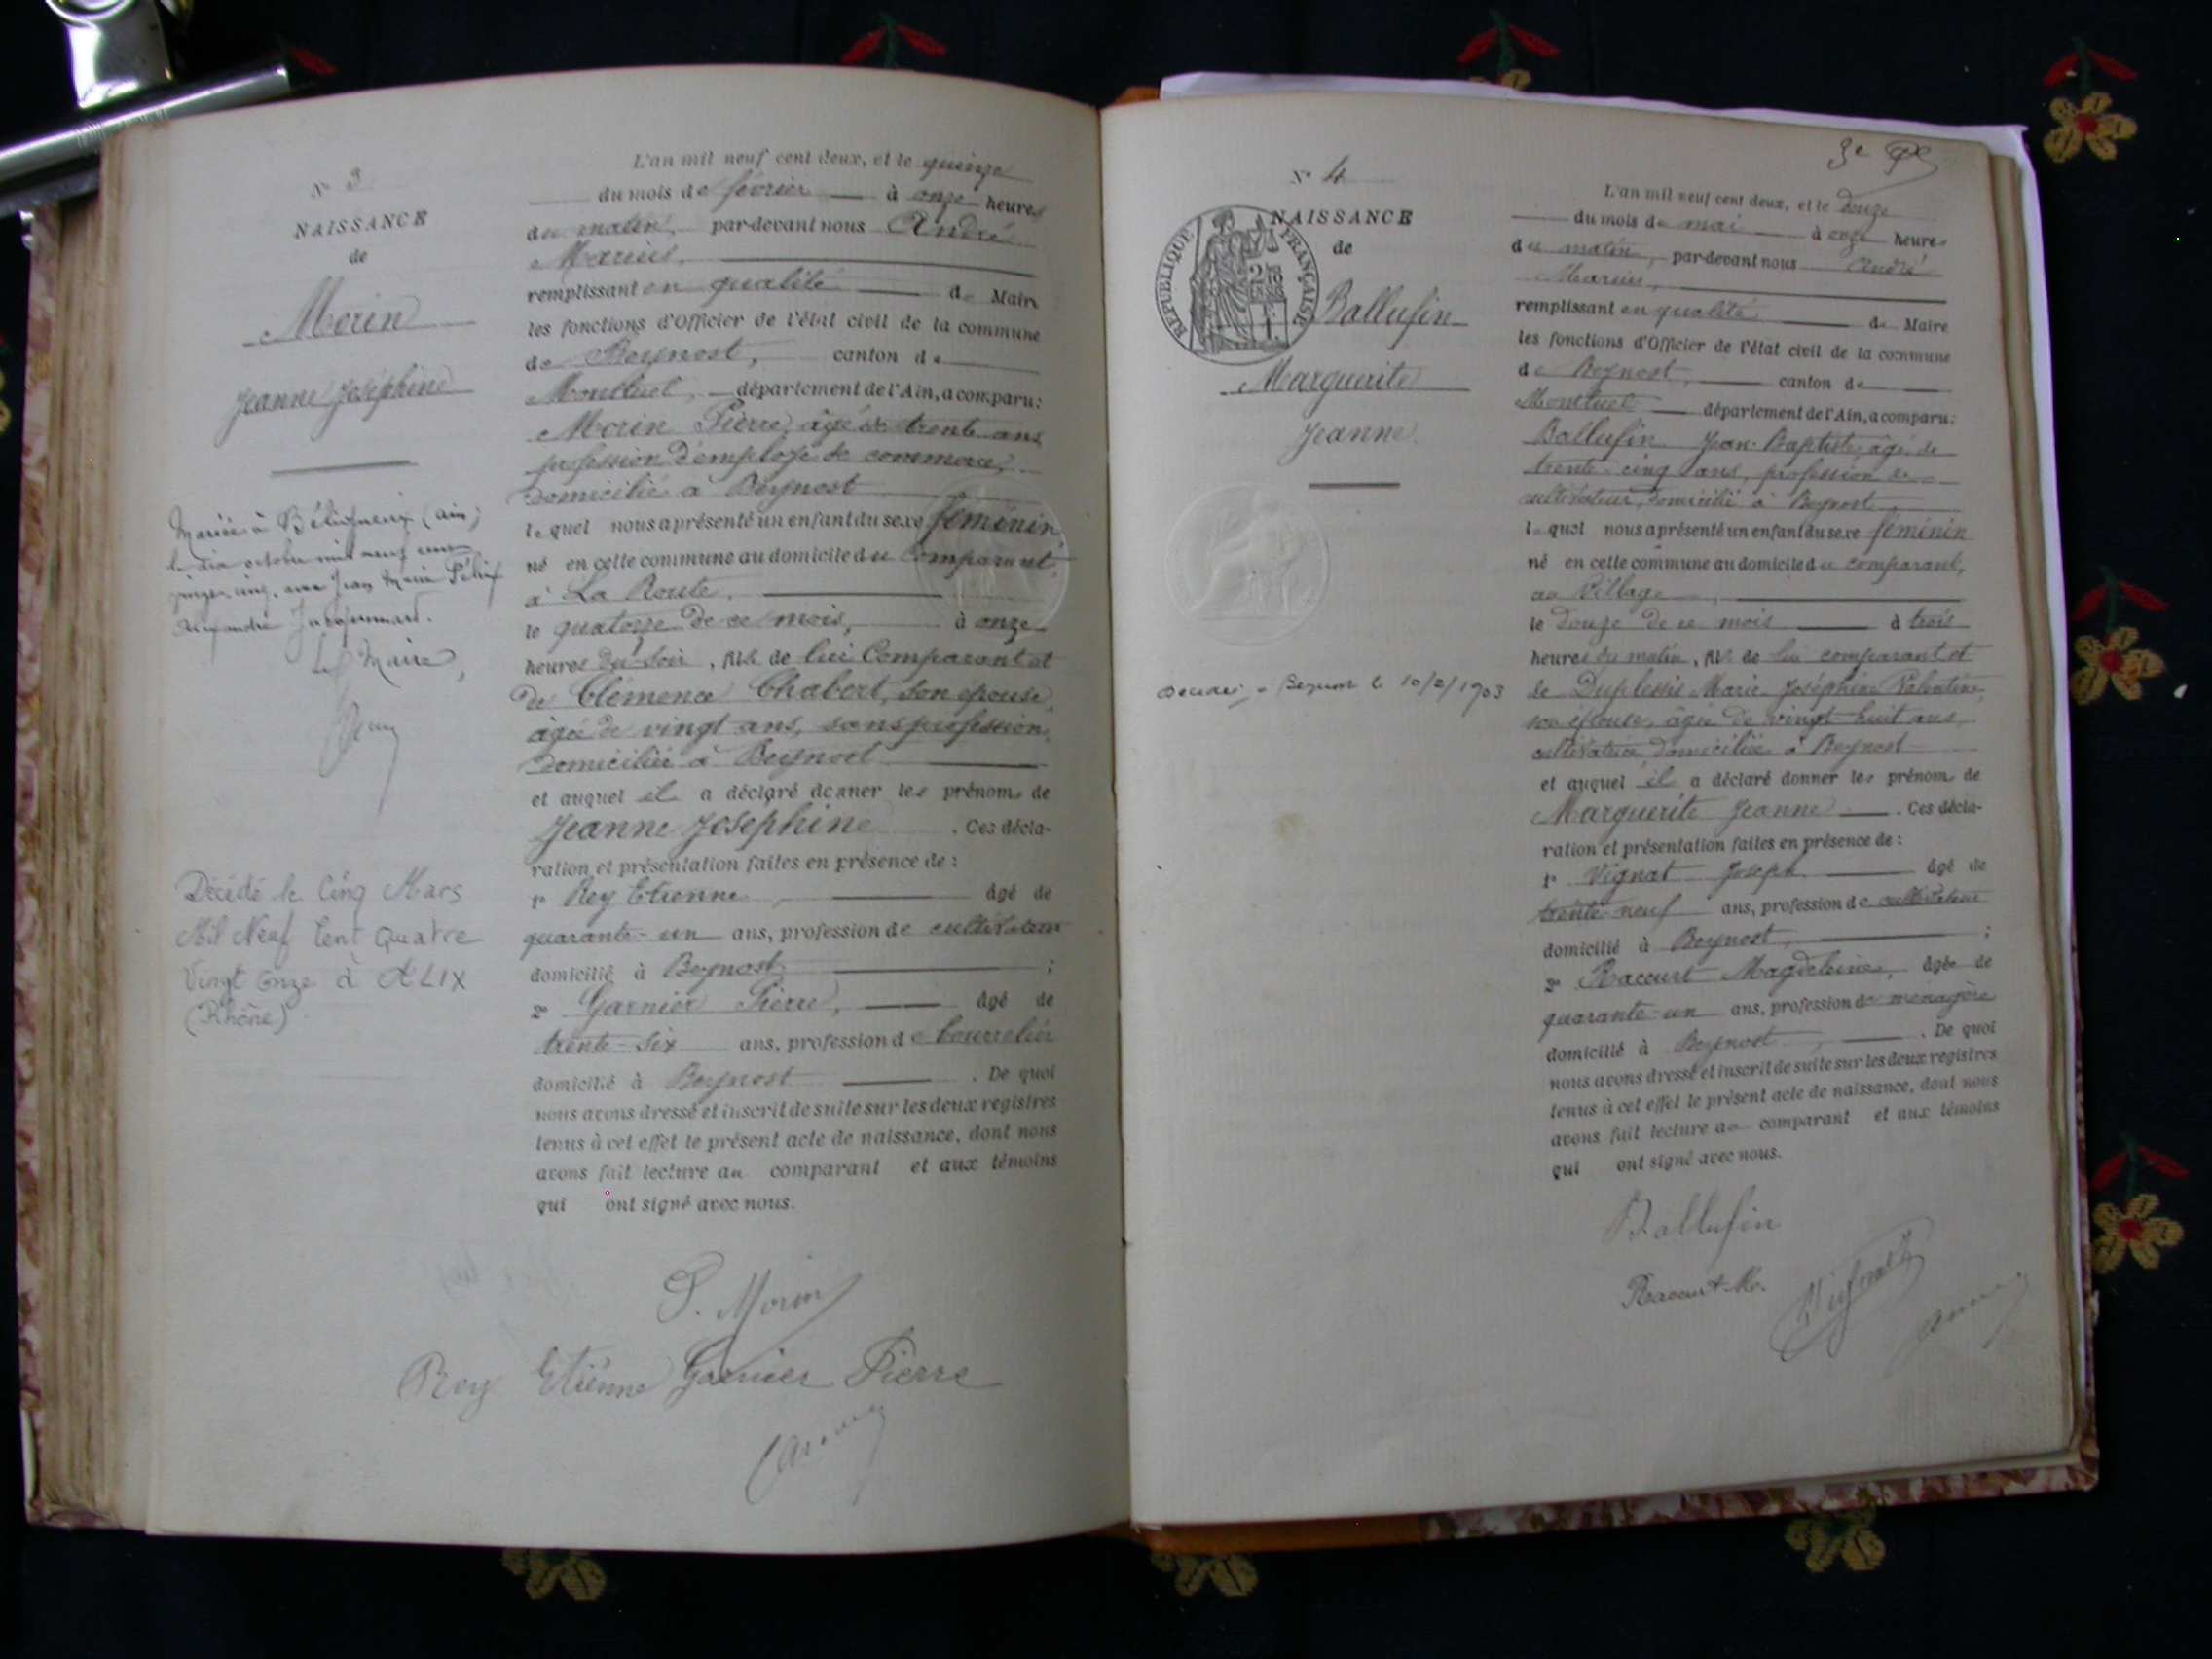 N° 3
NAISSANCE
de
Morin
Jeanne Joséphine
Mariée à Béligneux (Ain)
le dix octobre mil neuf cent
vingt cinq, avec Jean Marie Félix
Alexandre
Le Maire,
Décédé le Cinq Mars
Mil Neuf Cent Quatre
Vingt Onze à ALIX
(Rhône)
L'an mil neuf cent deux, et le quinze
du mois de février à onze heures
du matin, par-devant nous André
Marius,
remplissant en qualité de Maire
les fonctions d'Officier de l'état civil de la commune
de Beynost, canton de
Montluel, département de l'Ain, a comparu:
Morin Pierre, âgé de trente ans
profession d'employé de commerce,
domicilié à Beynost
lequel nous a présenté un enfant du sexe féminin,
né en cette commune au domicile du Comparant,
à La Route,
le quatorze de ce mois, à onze
heures du soir, fils de lui Comparant et
de Clémence Chabert, son épouse,
âgée de vingt ans, sans profession,
domiciliée à Beynost
et auquel il a déclaré donner les prénoms de
Jeanne Joséphine . Ces décla-
ration et présentation faites en présence de :
1° Rey Etienne, âgé de
quarante-un ans, profession de cultivateur
domicilié à Beynost ;
2° Garnier Pierre, âgé de
trente-six ans, profession de bourrelier
domicilié à Beynost . De quoi
nous avons dressé et inscrit de suite sur les deux registres
tenus à cet effet le présent acte de naissance, dont nous
avons fait lecture au comparant et aux témoins
qui ont signé avec nous.
P. Morin
Rey Etienne Garnier Pierre
André
3e
N° 4
NAISSANCE
de
RÉPUBLIQUE FRANÇAISE
Ballufin
Marguerite
Jeanne
Décédée à Beynost le 10/2/1903
L'an mil neuf cent deux, et le douze
du mois de mai à onze heures
du matin, par-devant nous André
Marius,
remplissant en qualité de Maire
les fonctions d'Officier de l'état civil de la commune
de Beynost, canton de
Montluel département de l'Ain, a comparu:
Ballufin Jean-Baptiste, âgé de
trente-cinq ans, profession de
cultivateur, domicilié à Beynost
lequel nous a présenté un enfant du sexe féminin
né en cette commune au domicile du comparant,
au Village,
le douze de ce mois à trois
heures du matin, fils de lui comparant et
de Duplessis Marie Joséphine Valentine,
son épouse, âgée de vingt-huit ans,
cultivatrice domiciliée à Beynost
et auquel il a déclaré donner les prénoms de
Marguerite Jeanne . Ces décla-
ration et présentation faites en présence de :
1° Vignat Joseph âgé de
trente-neuf ans, profession de cultivateur
domicilié à Beynost, ;
2° Racourt Magdeleine, âgée de
quarante-un ans, profession de ménagère
domicilié à Beynost, . De quoi
nous avons dressé et inscrit de suite sur les deux registres
tenus à cet effet le présent acte de naissance, dont nous
avons fait lecture au comparant et aux témoins
qui ont signé avec nous.
Ballufin
Racourt M. Vignat
André